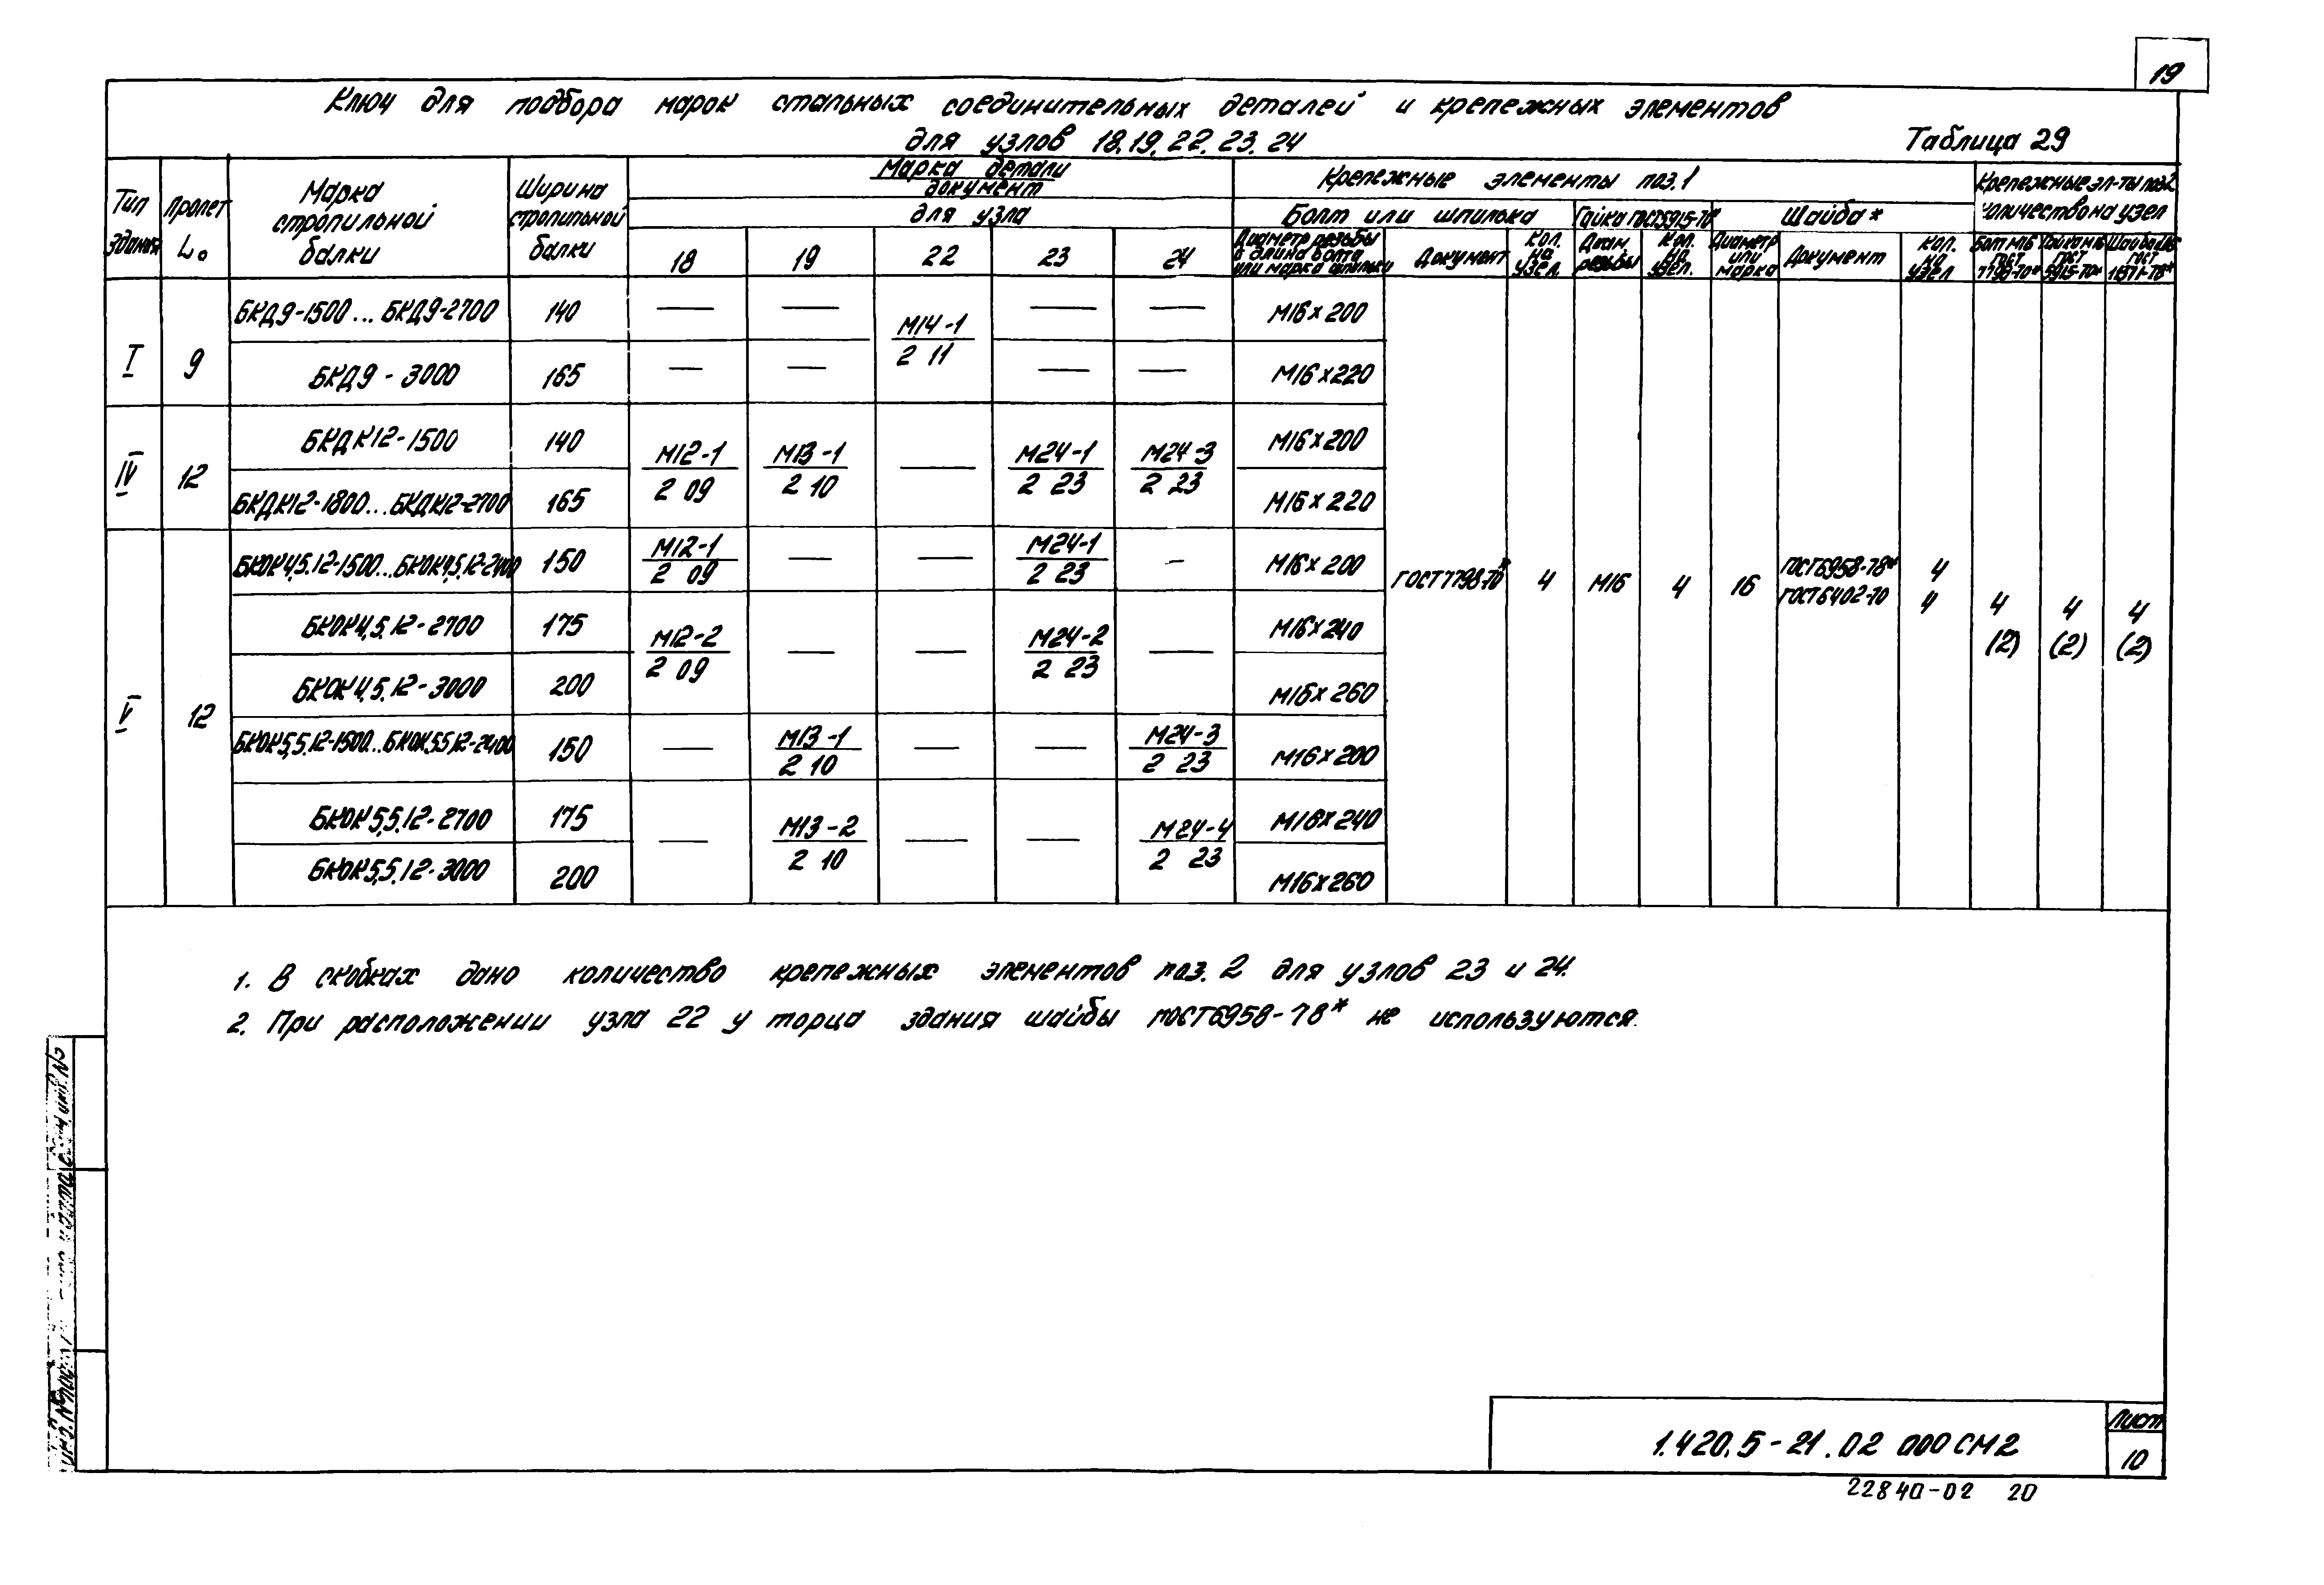 19
Ключ для подбора марок стальных соединительных деталей и крепежных элементов
для узлов 18.19.22.23.24
Таблица 29
Тип здания
Пролет L₀
Марка стропильной балки
Ширина стропильной балки
Марка детали
документ
для узла
18 19 22 23 24
Крепежные элементы поз.1
Болт или шпилька
Диаметр резьбы и длина болта или марка шпильки
Документ
Кол. на узел.
Гайка ГОСТ5915-70*
Диам. резьбы
Кол. на узел.
Шайба*
Диаметр или марка
Документ
Кол. на узел
Крепежные эл-ты поз.2
количество на узел
Болт М16 ГОСТ 7798-70*
Гайка М16 ГОСТ 5915-70*
Шайба ГОСТ 11371-78*
I 9
БКД9-1500...БКД9-2700 140 — — М14-1 — — М16х200
2 11
БКД9-3000 165 — — — — М16х220
IV 12
БКДК12-1500 140 М16х200
М12-1 М13-1 — М24-1 М24-3
2 09 2 10 2 23 2 23
БКДК12-1800...БКДК12-2700 165 М16х220
V 12
БКОК4,5.12-1500...БКОК4,5.12-2400 150 М12-1 — — М24-1 — М16х200
2 09 2 23
ГОСТ7798-70* 4 М16 4 16 ГОСТ6958-78* 4
ГОСТ6402-70 4
4 4 4
(2) (2) (2)
БКОК4,5.12-2700 175 М16х240
М12-2 — — М24-2 —
2 09 2 23
БКОК4,5.12-3000 200 М16х260
БКОК5,5.12-1500...БКОК5,5.12-2400 150 — М13-1 — — М24-3 М16х200
2 10 2 23
БКОК5,5.12-2700 175 М16х240
— М13-2 — — М24-4
2 10 2 23
БКОК5,5.12-3000 200 М16х260
1. В скобках дано количество крепежных элементов поз. 2 для узлов 23 и 24.
2. При расположении узла 22 у торца здания шайбы ГОСТ6958-78* не используются.
1.420.5-21.02 000СМ2
Лист
10
22840-02 20